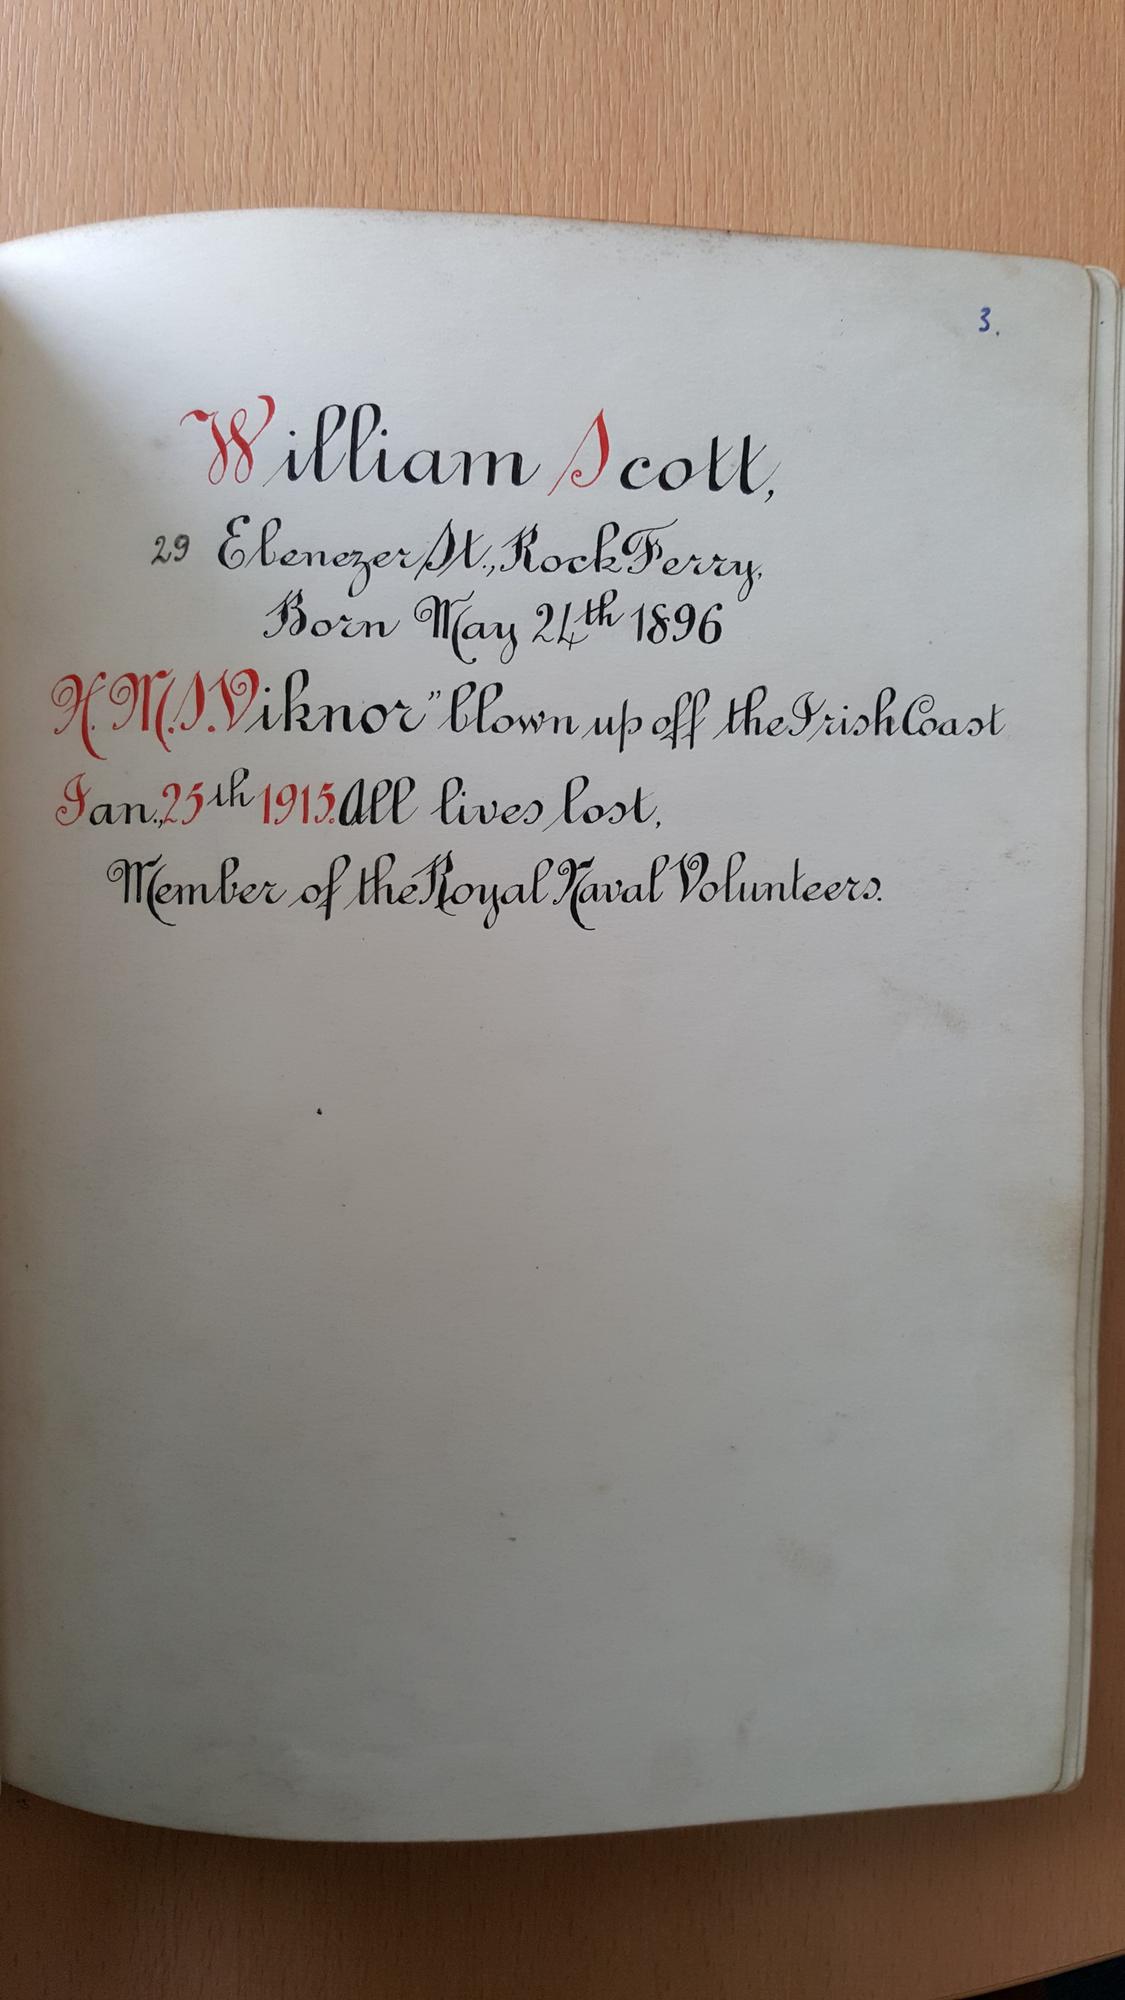 3.
William Scott,
29 Ebenezer St., Rock Ferry,
Born May 24th 1896
H.M.S. Viknor" blown up off the Irish Coast
Jan., 25th 1915. All lives lost,
Member of the Royal Naval Volunteers.